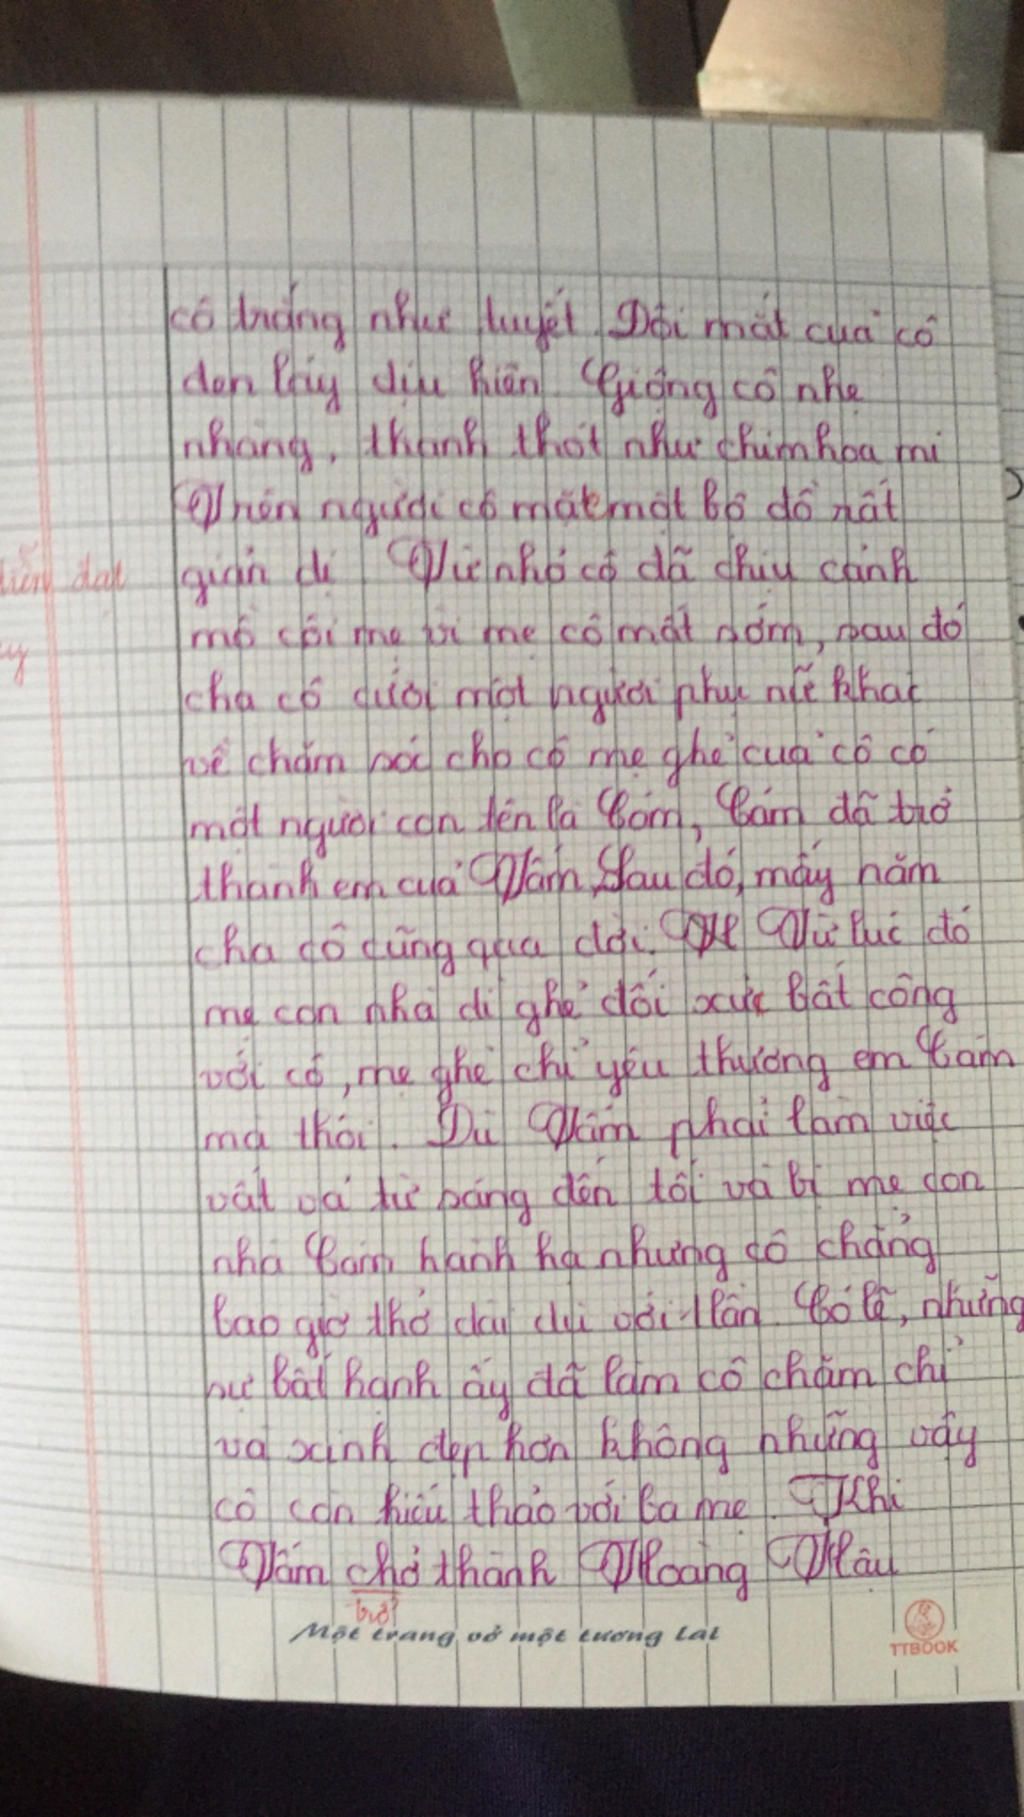 cô trắng như tuyết. Đôi mắt của cô
đen láy dịu hiền. Giọng cô nhẹ
nhàng, thánh thót như chim họa mi
Trên người cô mặc một bộ đồ rất
giản dị. Từ nhỏ cô đã chịu cảnh
mồ côi mẹ vì mẹ cô mất sớm, sau đó
cha cô cưới một người phụ nữ khác
về chăm sóc cho cô mẹ ghẻ của cô có
một người con tên là Cám, Cám đã trở
thành em của Tấm. Sau đó, mấy năm
cha cô cũng qua đời. Từ lúc đó
mẹ con nhà dì ghẻ đối xử bất công
với cô, mẹ ghẻ chỉ yêu thương em Cám
mà thôi. Dù Tấm phải làm việc
vất vả từ sáng đến tối và bị mẹ con
nhà Cám hành hạ nhưng cô chẳng
bao giờ thở dài dù với 1 lần. Có lẽ, những
sự bất hạnh ấy đã làm cô chăm chỉ
và xinh đẹp hơn không những vậy
cô còn hiếu thảo với ba mẹ. Khi
Tấm chở thành Hoàng Hậu
trở?
Một trang vở một tương lai
TTBOOK